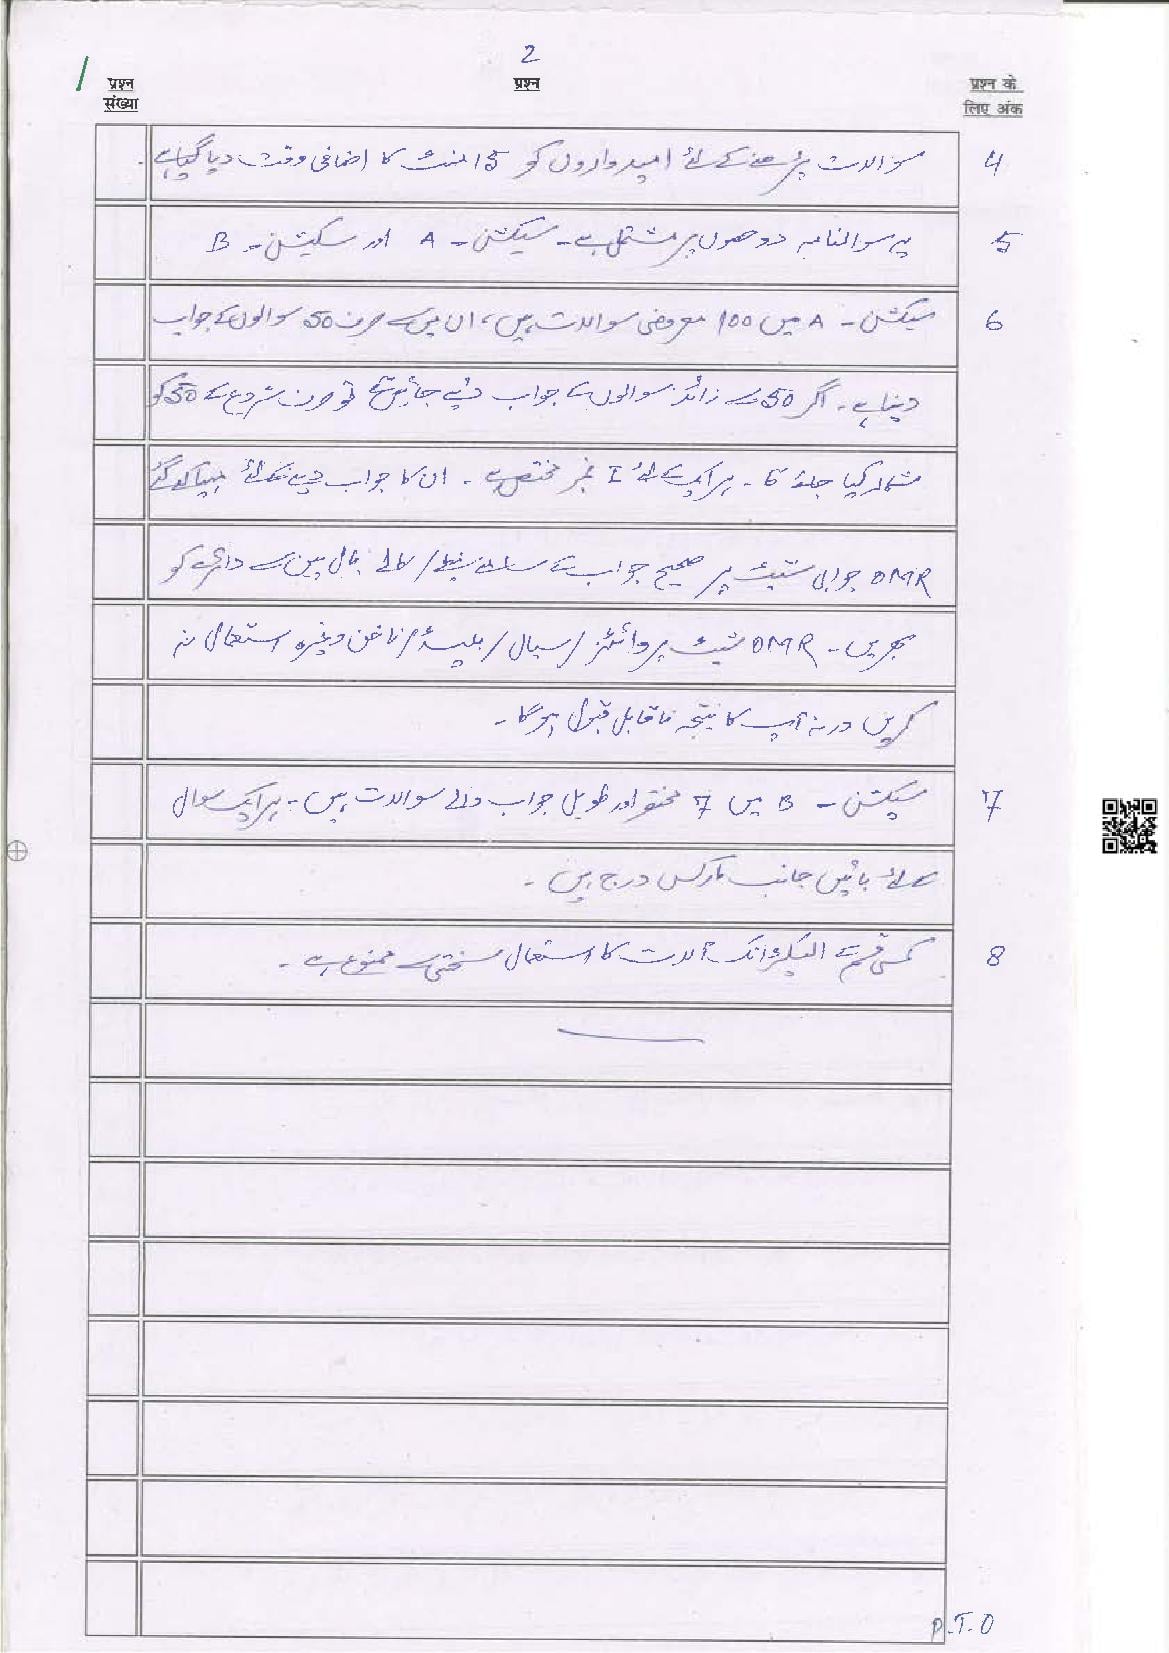 2
प्रश्न संख्या
प्रश्न
प्रश्न के लिए अंक
4 سوالات پڑھنے کے لئے امیدواروں کو 15 منٹ کا اضافی وقت دیا گیا ہے۔
5 یہ سوالنامہ دو حصوں پر مشتمل ہے۔ سیکشن - A اور سیکشن - B
6 سیکشن - A میں 100 معروضی سوالات ہیں، ان میں سے صرف 50 سوالوں کے جواب
دینا ہے۔ اگر 50 سے زائد سوالوں کے جواب دیئے جائیں گے تو صرف شروع کے 50 کو
شمار کیا جائے گا۔ ہر ایک کے لئے 1 نمبر مختص ہے۔ ان کا جواب دینے کے لئے مہیا کئے گئے
OMR جوابی شیٹ پر صحیح جواب کے سامنے نیلے/کالے بال پین سے دائرے کو
بھریں۔ OMR شیٹ پر وائٹنر/سیال/بلیڈ/ناخن وغیرہ استعمال نہ
کریں ورنہ آپ کا نتیجہ ناقابل قبول ہوگا۔
7 سیکشن - B میں 7 مختصر اور طویل جواب والے سوالات ہیں۔ ہر ایک سوال
کے لئے بائیں جانب مارکس درج ہیں۔
8 کسی قسم کے الیکٹرانک آلات کا استعمال سختی سے ممنوع ہے۔
P.T.O